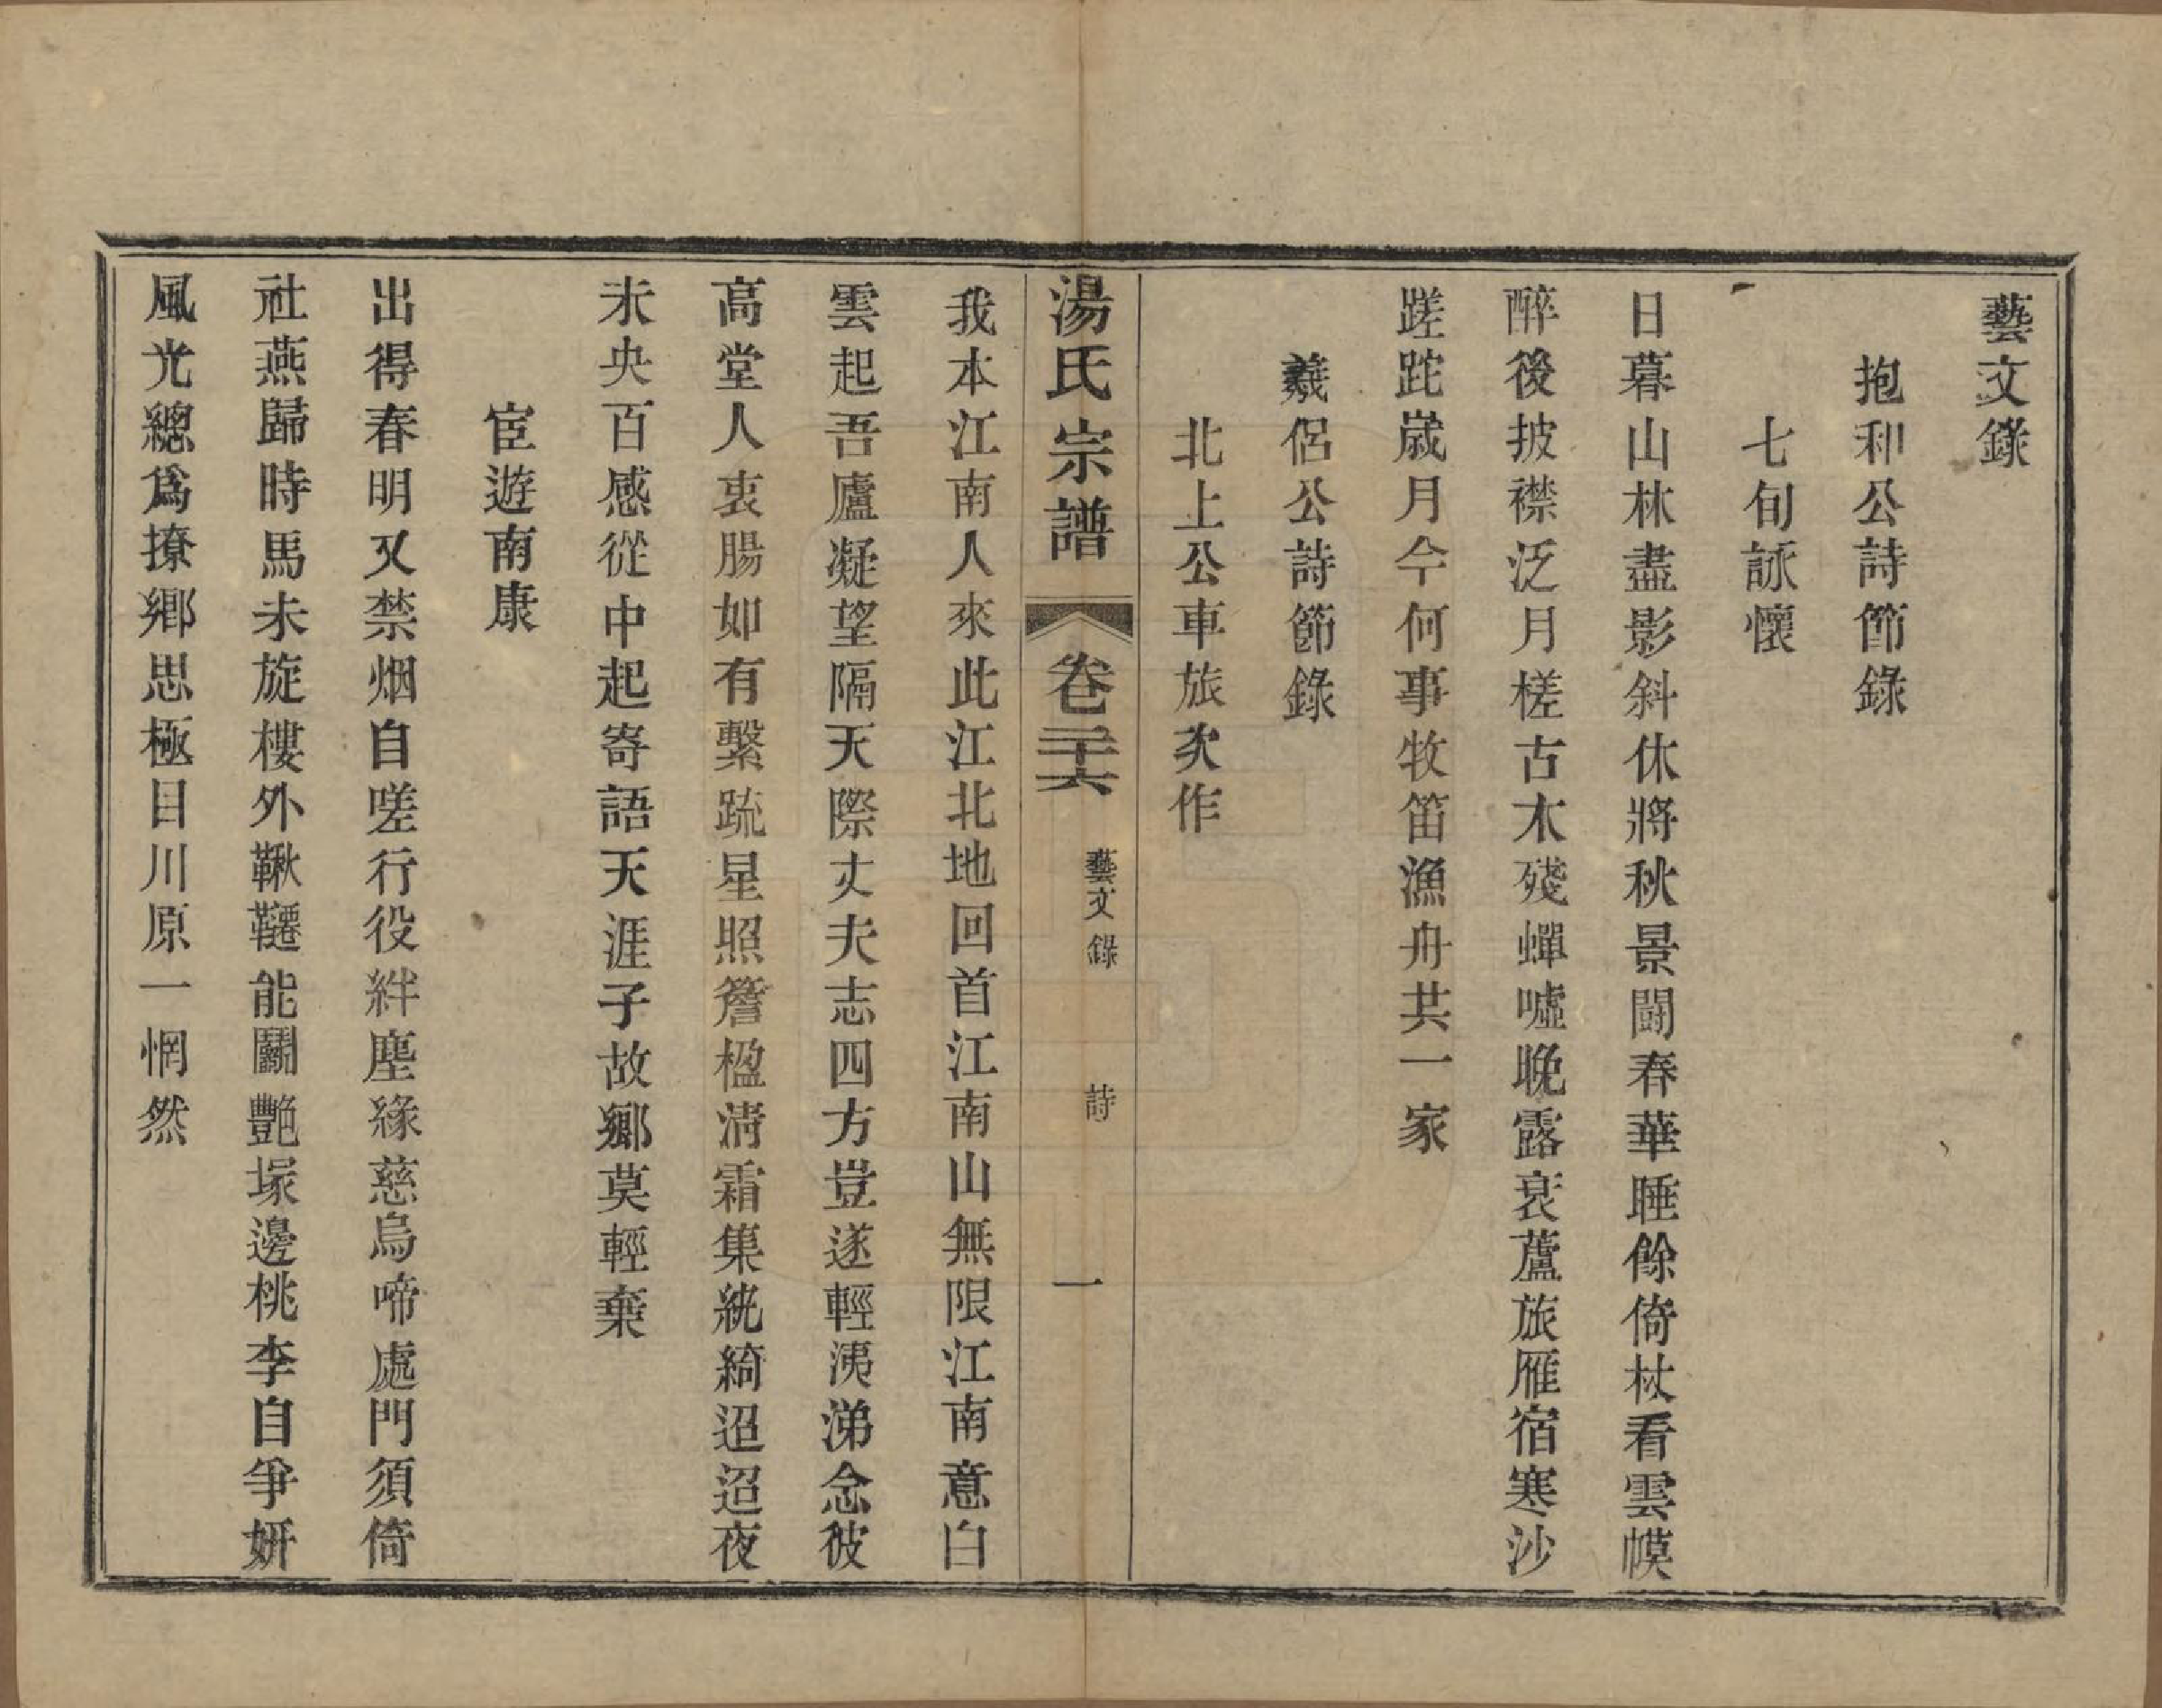 藝文錄
抱和公詩節錄
七旬詠懷
日暮山林盡影斜休將秋景鬪春華睡餘倚杖看雲幙
醉後披襟泛月槎古木殘蟬噓晚露衰蘆旅雁宿寒沙
蹉跎歲月今何事牧笛漁舟共一家
羲侶公詩節錄
北上公車旅次作
湯氏宗譜 卷二十六 藝文錄 詩 一
我本江南人來此江北地回首江南山無限江南意白
雲起吾廬凝望隔天際丈夫志四方豈遂輕洟涕念彼
高堂人衷腸如有繫疏星照簷楹清霜集綂綺迢迢夜
未央百感從中起寄語天涯子故鄉莫輕棄
宦遊南康
出得春明又禁烟自嗟行役絆塵緣慈烏啼處門須倚
社燕歸時馬未旋樓外鞦韆能鬪艷塚邊桃李自爭妍
風光總爲撩鄉思極目川原一惘然